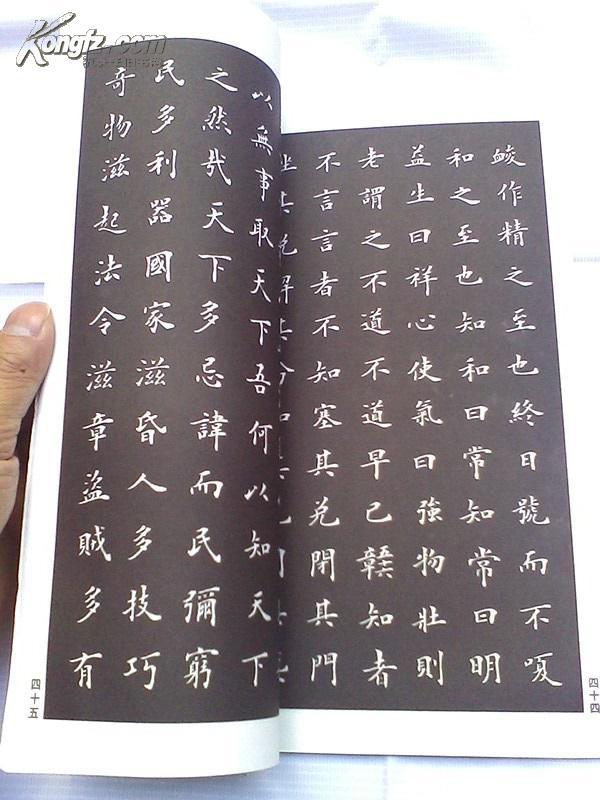 Kongfz.com
峻作精之至也終日號而不嗄
和之至也知和曰常知常曰明
益生曰祥心使氣曰強物壯則
老謂之不道不道早已知者
不言言者不知塞其兌閉其門
挫其銳解其紛和其
四十四
以無事取天下吾何以知天下
之然哉天下多忌諱而民彌窮
民多利器國家滋昏人多技巧
奇物滋起法令滋章盜賊多有
四十五